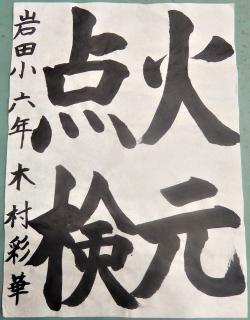 火元
点検
岩田小六年木村彩華